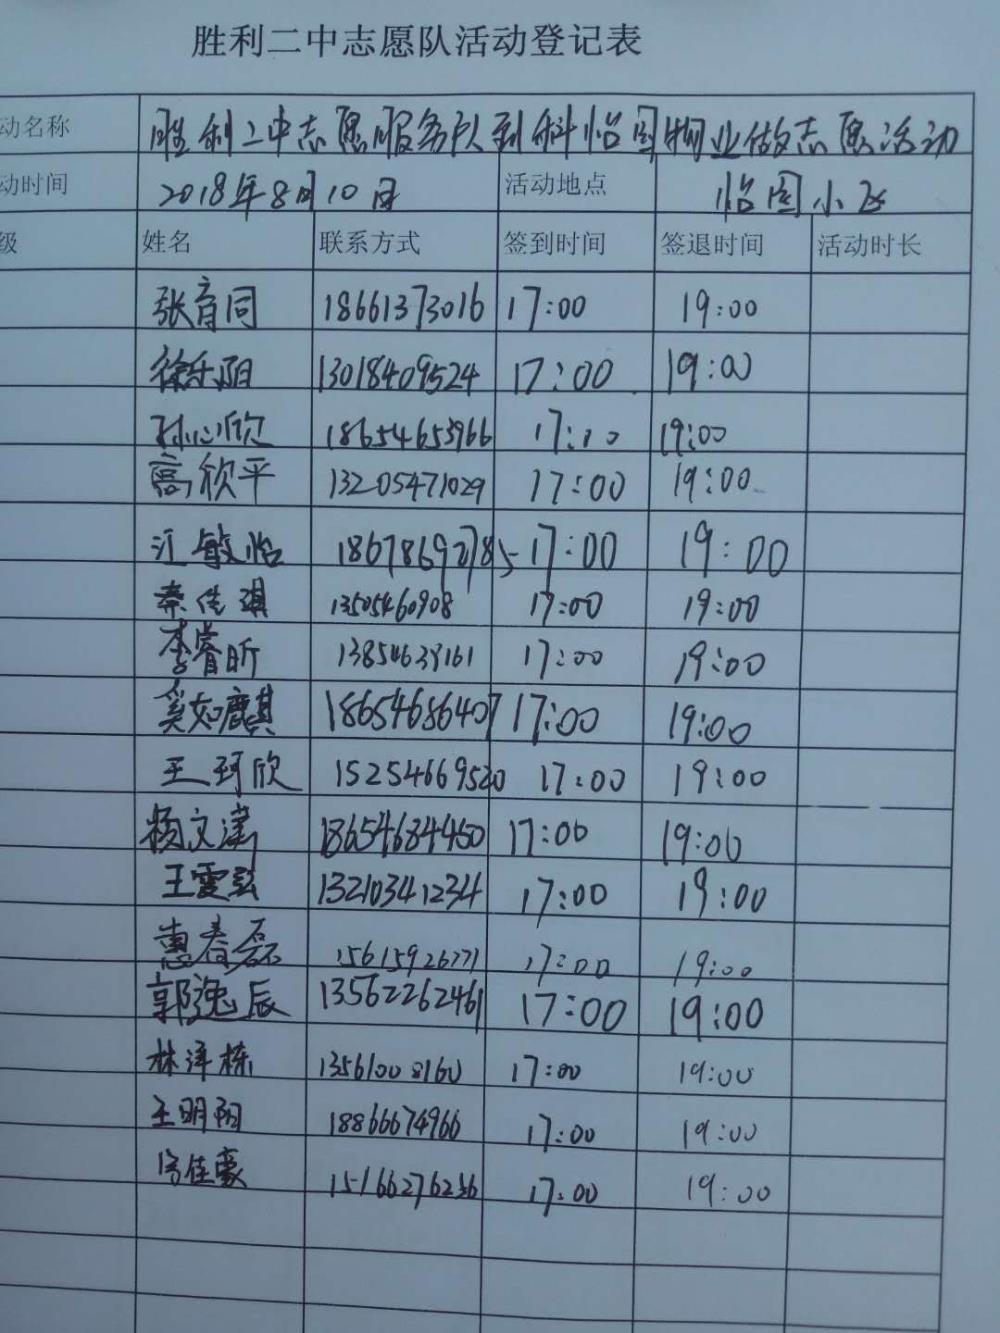 胜利二中志愿队活动登记表
动名称 胜利二中志愿服务队到科怡园物业做志愿活动
动时间 2018年8月10日 活动地点 怡园小区
级 姓名 联系方式 签到时间 签退时间 活动时长
张育同 18661373016 17:00 19:00
徐乐阳 13018409524 17:00 19:00
孙心欣 18654653966 17:00 19:00
高欣平 13205471029 17:00 19:00
江敏怡 18678692785 17:00 19:00
秦佳琪 13505460908 17:00 19:00
李睿昕 13854639161 17:00 19:00
奚如麒 18654686407 17:00 19:00
王珂欣 15254669520 17:00 19:00
杨文潇 18654684450 17:00 19:00
王雯 13210341234 17:00 19:00
惠春磊 15615926771 17:00 19:00
郭逸辰 13562262461 17:00 19:00
林泽栋 13561008160 17:00 19:00
王明阳 18866674966 17:00 19:00
佳豪 15166276236 17:00 19:00